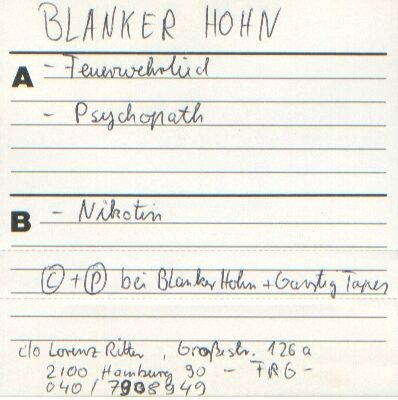 BLANKER HOHN
A
- Feuerwehrlied
- Psychopath
B
- Nikotin
Ⓒ + Ⓟ bei Blanker Hohn + Garstig Tapes
c/o Lorenz Ritter, Großestr. 126a
2100 Hamburg 90 - FRG -
040 / 7908949